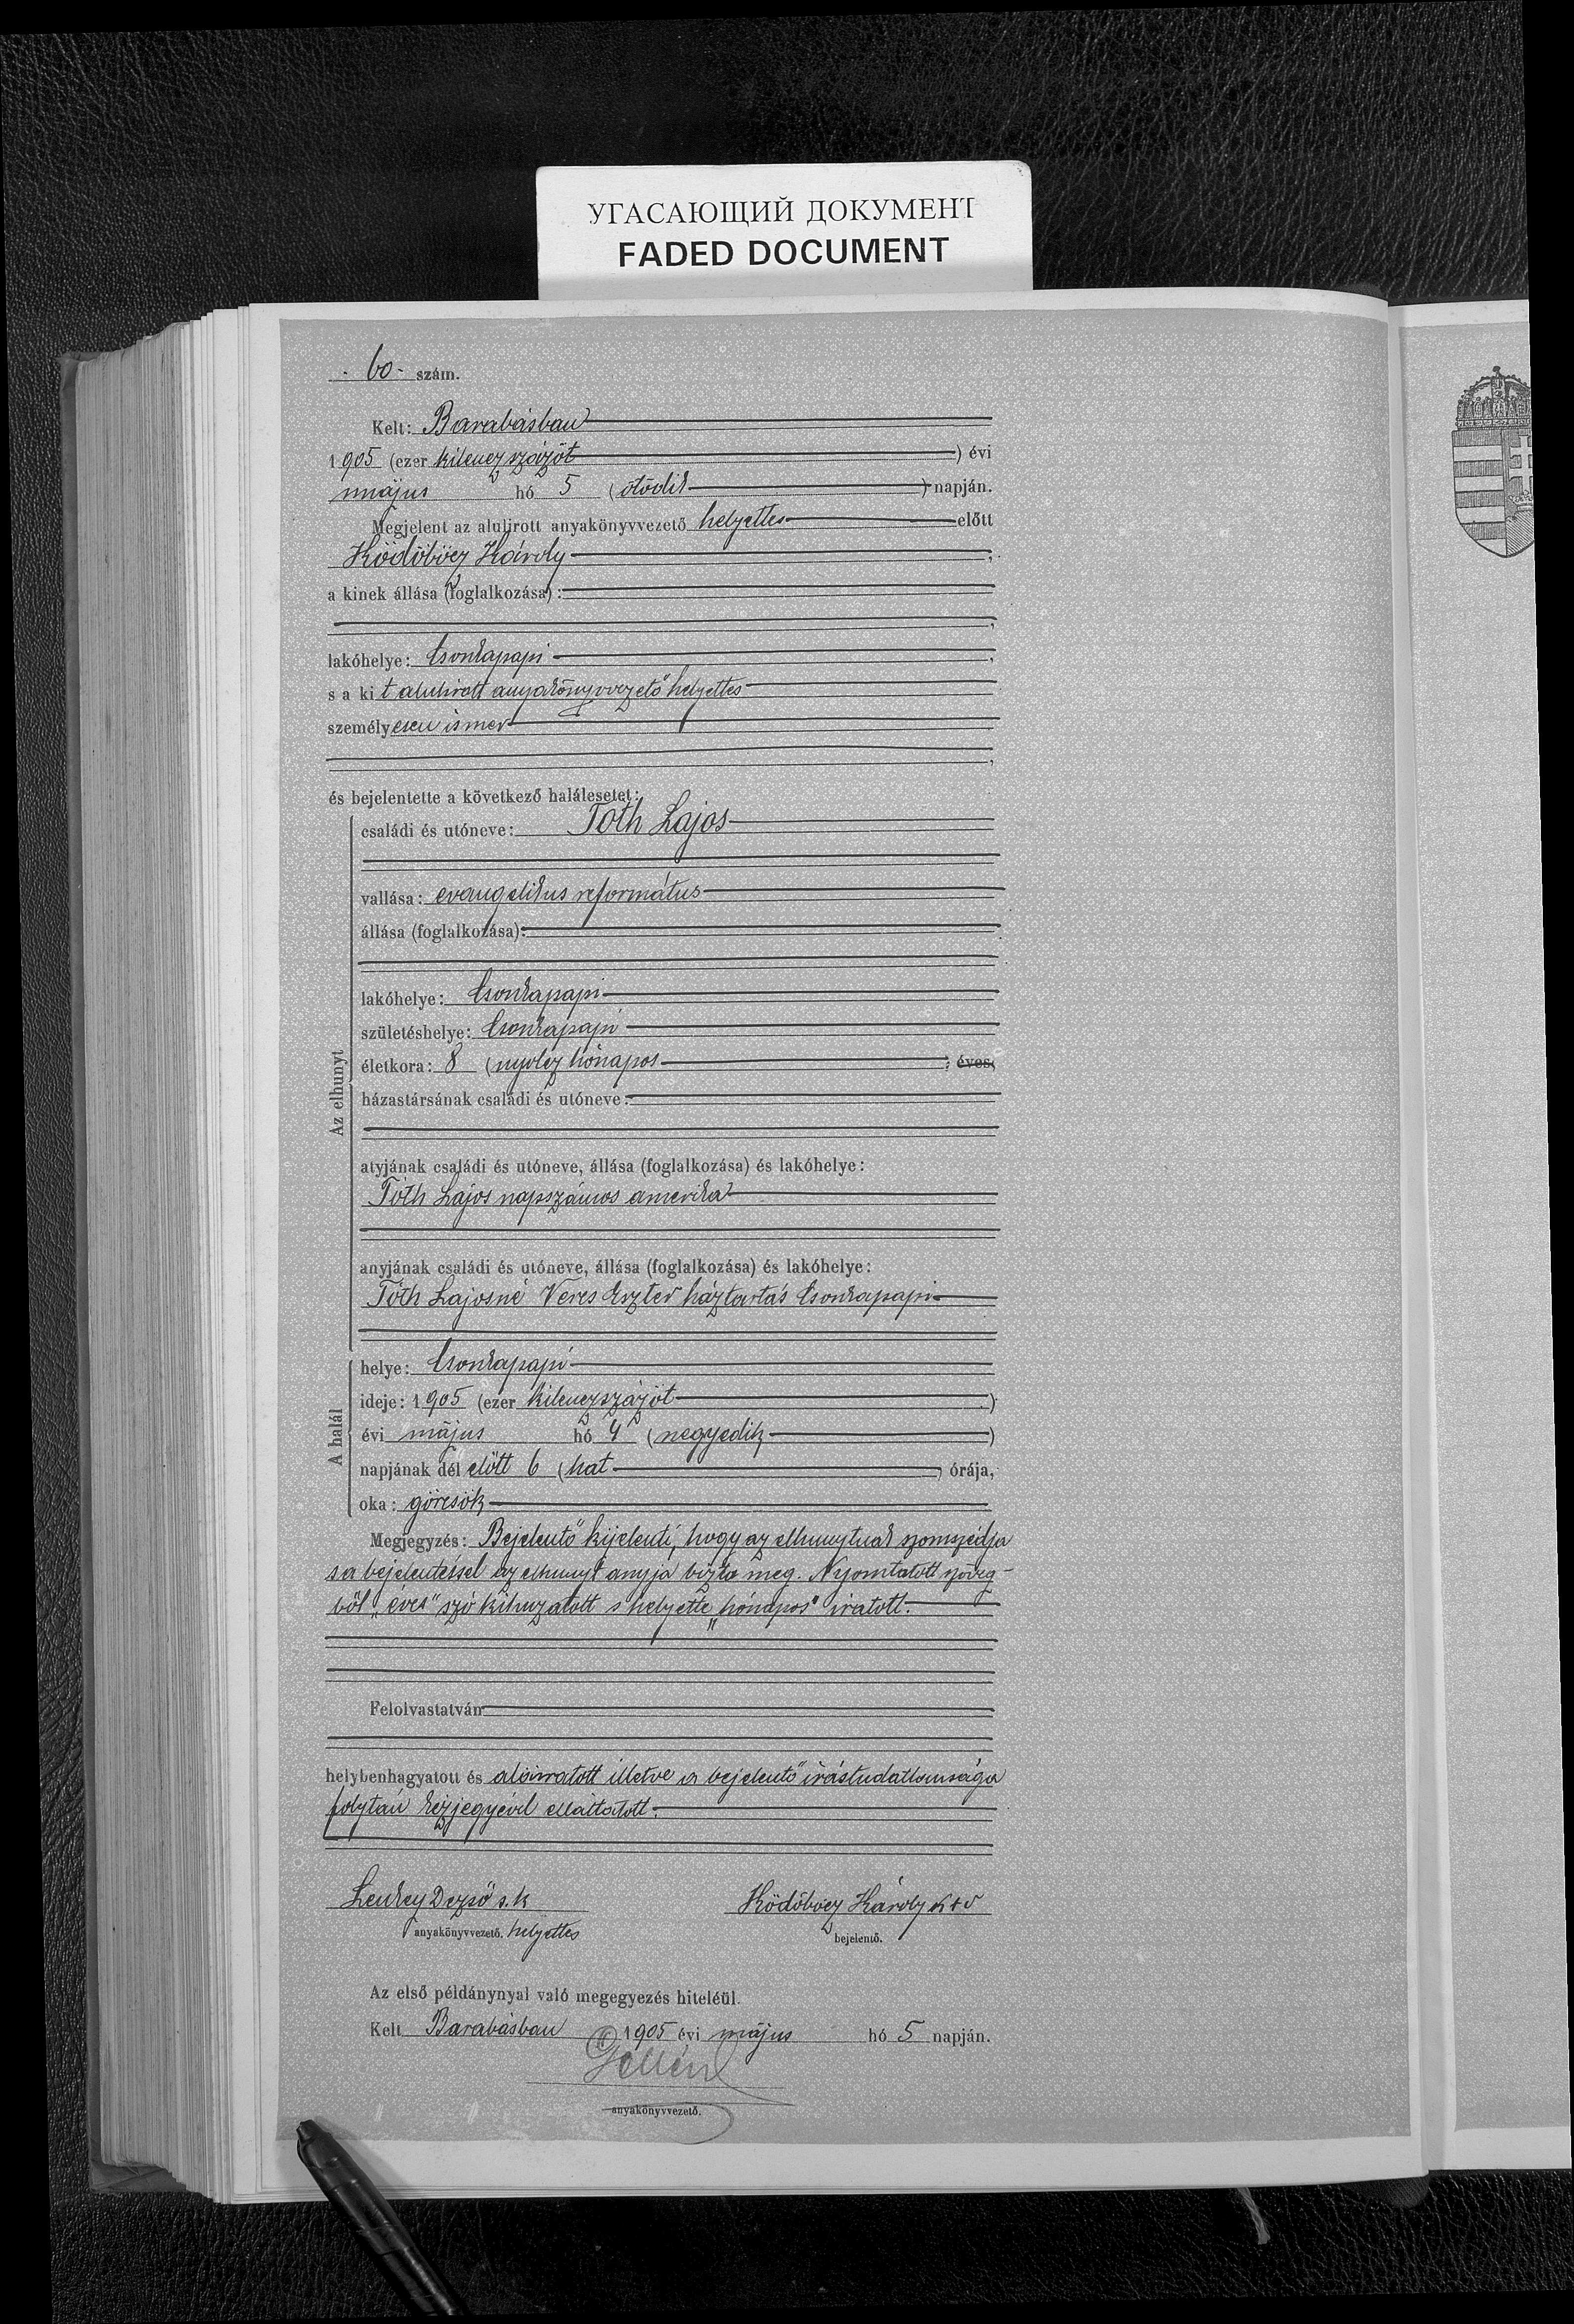 УГАСАЮЩИЙ ДОКУМЕНТ
FADED DOCUMENT
· 60 · szám.
Kelt: Barabásban
1905 (ezer kilenczszázöt ) évi
május hó 5 (ötödik ) napján.
Megjelent az alulirott anyakönyvvezető helyettes előtt
Ködöböcz Károly ,
a kinek állása (foglalkozása):
,
lakóhelye: Csonkapapi ,
s a kit alulirott anyakönyvvezető helyettes
személyesen ismer
,
és bejelentette a következő halálesetet:
Az elhunyt
családi és utóneve: Tóth Lajos
vallása: evangelikus református
állása (foglalkozása):
lakóhelye: Csonkapapi
születéshelye: Csonkapapi
életkora: 8 (nyolcz hónapos ; éves;
házastársának családi és utóneve:
atyjának családi és utóneve, állása (foglalkozása) és lakóhelye:
Tóth Lajos napszámos amerika
anyjának családi és utóneve, állása (foglalkozása) és lakóhelye:
Tóth Lajosné Veres Eszter háztartás Csonkapapi
A halál
helye: Csonkapapi
ideje: 1905 (ezer kilenczszázöt )
évi május hó 4 (negyedik )
napjának dél előtt 6 (hat ) órája,
oka: görcsök
Megjegyzés: Bejelentő kijelenti, hogy az elhunytnak szomszédja
s a bejelentéssel az elhunyt anyja bizta meg. Nyomtatott szöveg-
ből „éves" szó kihuzatott s helyette „hónapos" iratott.
Felolvastatván
helybenhagyatott és aláiratott illetve a bejelentő irástudatlansága
folytán kézjegyével elláttatott.
Lenkey Dezső s.k
anyakönyvvezető. helyettes
Ködöböcz Károly k+v
bejelentő.
Az első példánynyal való megegyezés hiteléül.
Kelt Barabásban 1905 évi május hó 5 napján.
anyakönyvvezető.